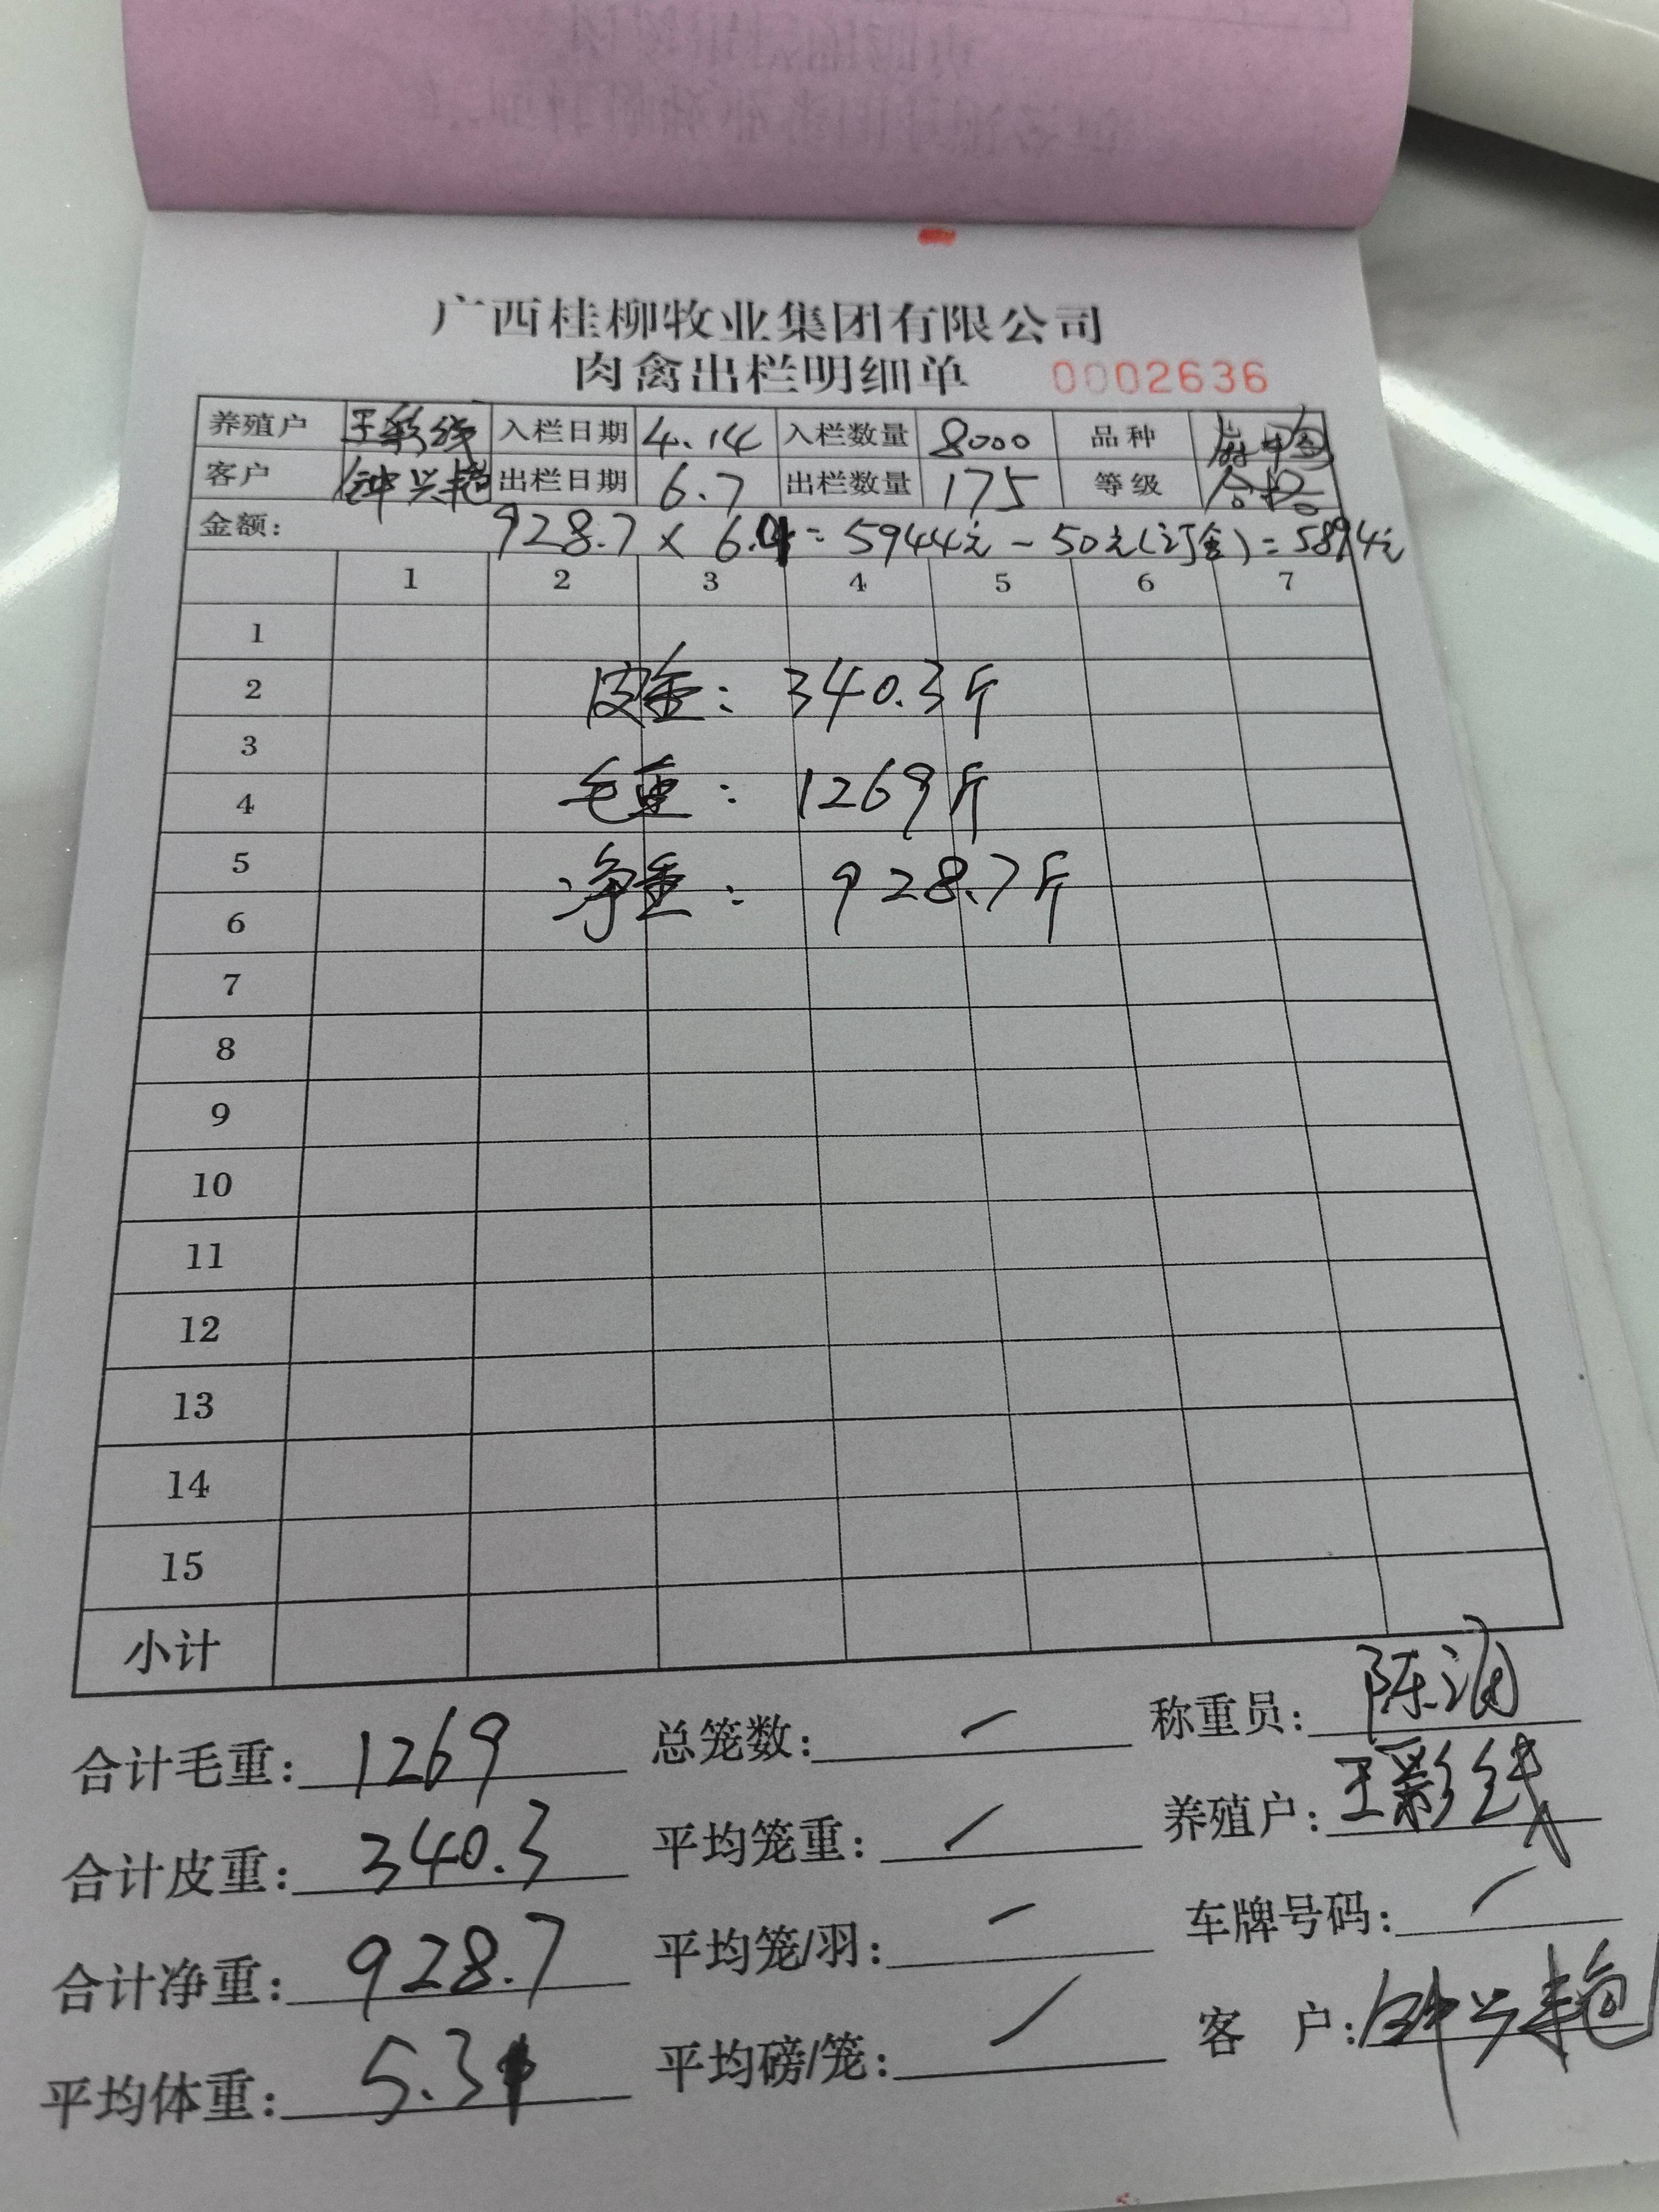 广西桂柳牧业集团有限公司
肉禽出栏明细单 0002636
养殖户 王彩线 入栏日期 4.14 入栏数量 8000 品种
客户 钟兴艳 出栏日期 6.7 出栏数量 175 等级 合格
金额: 928.7 × 6.4 = 5944元 - 50元(订金) = 5894元
1 2 3 4 5 6 7
1
2 皮重: 340.3斤
3
4 毛重: 1269斤
5 净重: 928.7斤
6
7
8
9
10
11
12
13
14
15
小计
合计毛重: 1269 总笼数: / 称重员: 陈润
合计皮重: 340.3 平均笼重: / 养殖户: 王彩线
合计净重: 928.7 平均笼/羽: / 车牌号码: /
平均体重: 5.31 平均磅/笼: / 客户: 钟兴艳